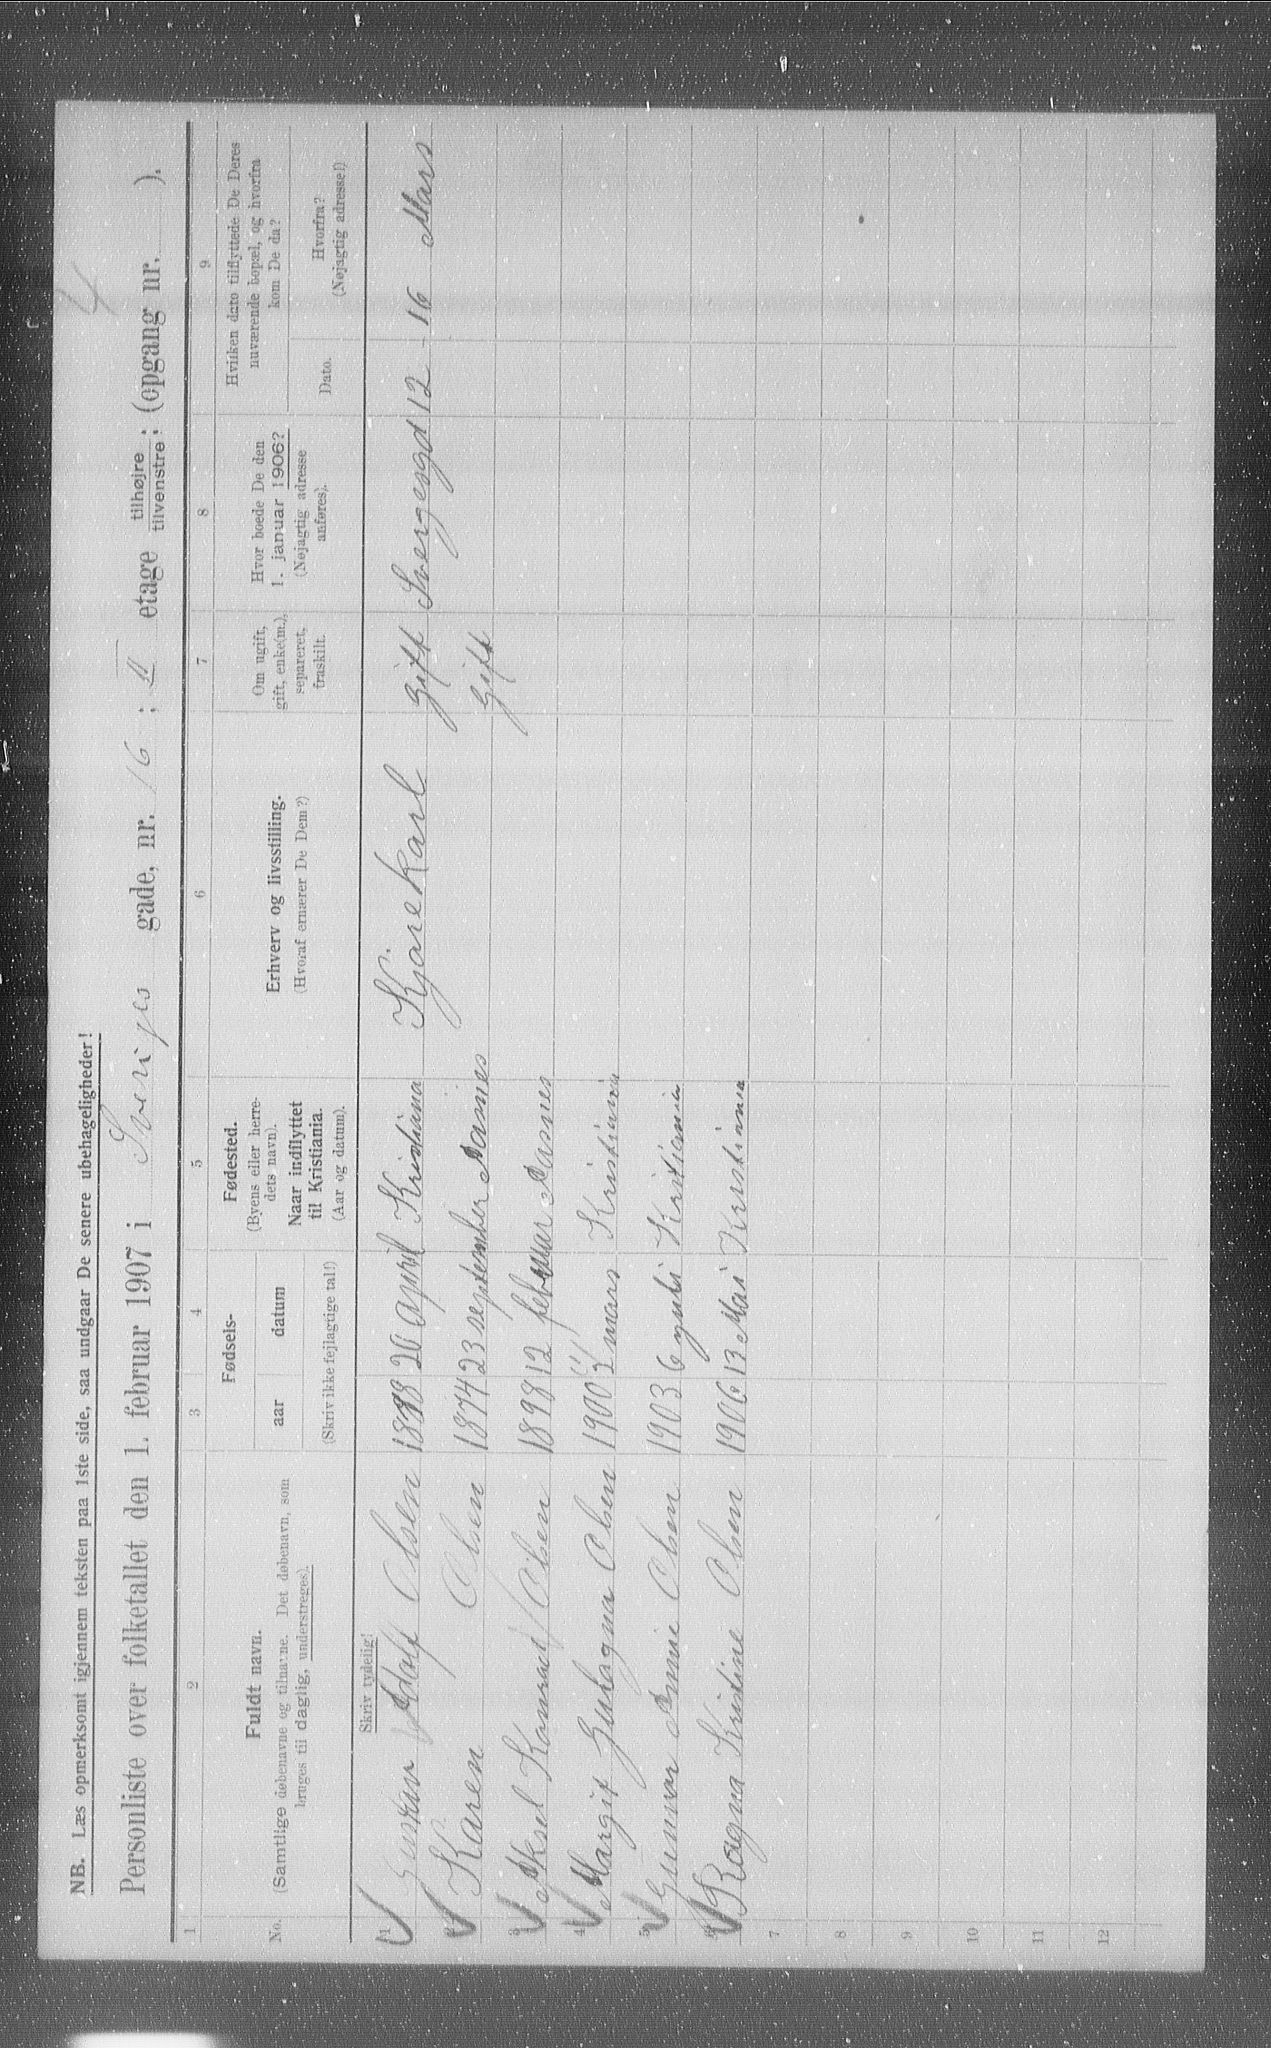 4
NB. Læs opmerksomt igjennem teksten paa 1ste side, saa undgaar De senere ubehageligheder!
Personliste over folketallet den 1. februar 1907 i Sveriges gade, nr. 16 ; II etage tilhøjre tilvenstre; (opgang nr. ).
1 2 3 4 5 6 7 8 9
No.
Fuldt navn.
(Samtlige døbenavne og tilnavne. Det døbenavn, som
bruges til daglig, understreges).
Fødsels-
aar datum
(Skriv ikke fejlagtige tal!)
Fødested.
(Byens eller herre-
dets navn).
Naar indflyttet
til Kristiania.
(Aar og datum).
Erhverv og livsstilling.
(Hvoraf ernærer De Dem?)
Om ugift,
gift, enke(m.),
separeret,
fraskilt.
Hvor boede De den
1. januar 1906?
(Nøjagtig adresse
anføres).
Hvilken dato tilflyttede De Deres
nuværende bopæl, og hvorfra
kom De da?
Dato.
Hvorfra?
(Nøjagtig adresse!)
Skriv tydelig!
1 Gustav Adolf Olsen 20 april Kristiana Kjørekarl gift Svergesgd 12 16 Mars
2 Karen Olsen 1874 23 september gift
3 Aksel Konrad Olsen 1898 12 februar
4 Margit Olsen 1900 mars Kristiania
5 Gunnar Olsen 1903 6 Kristiania
6 Ragna Kristine Olsen 1906 13 Mai Kristiania
7
8
9
10
11
12